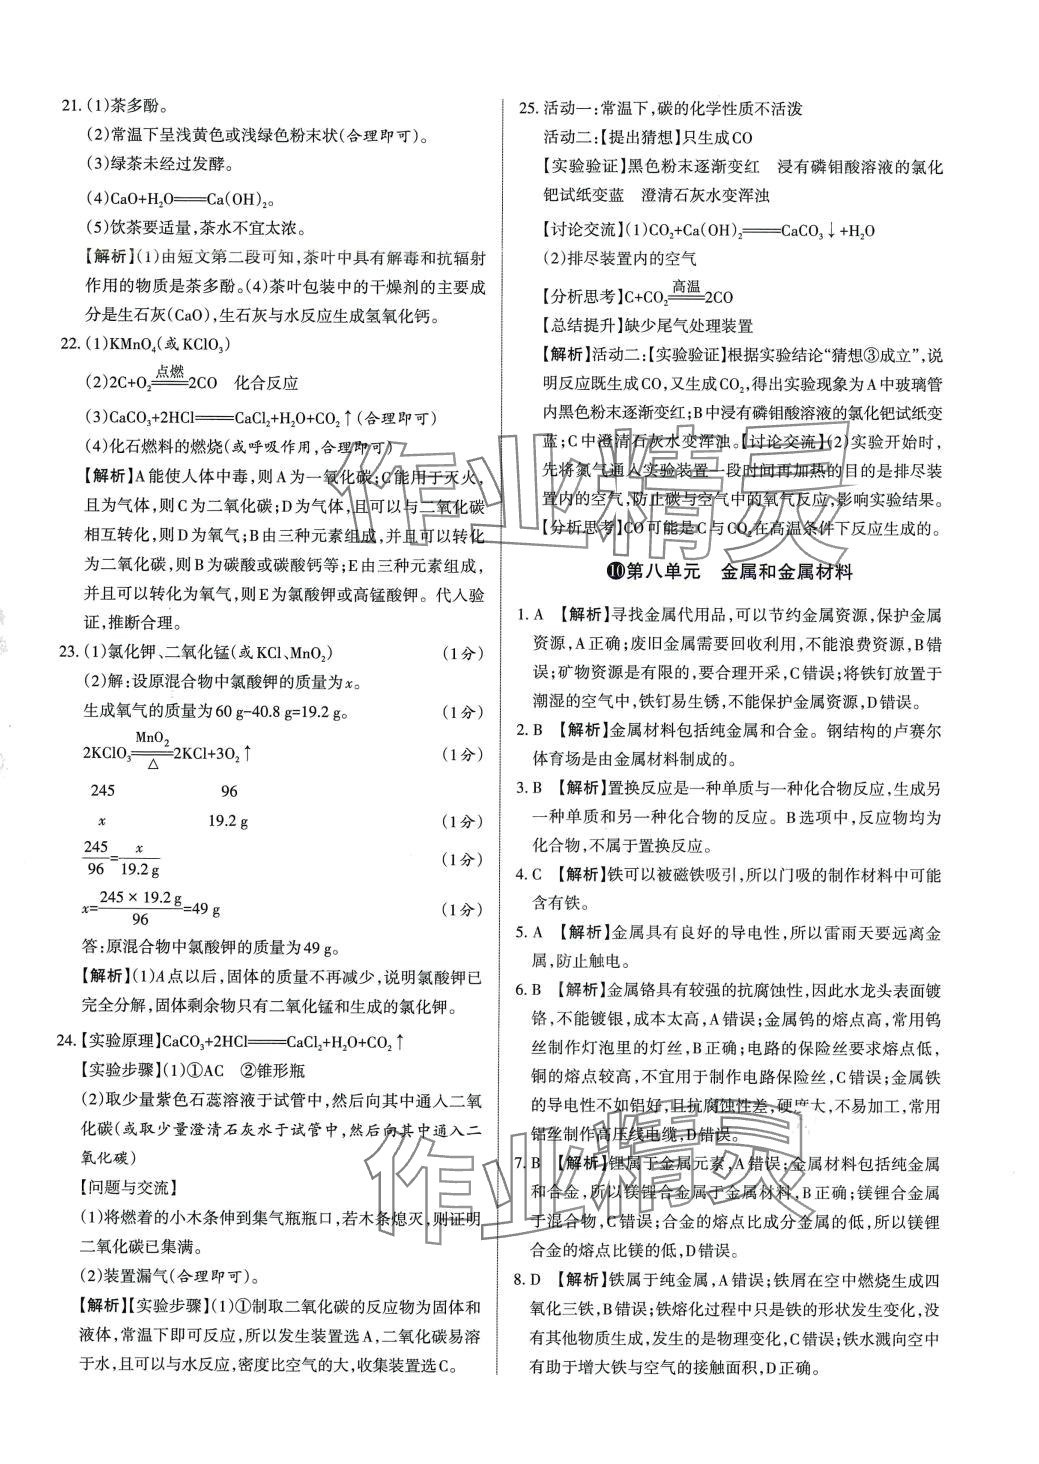 21. (1)茶多酚。
(2)常温下呈浅黄色或浅绿色粉末状(合理即可)。
(3)绿茶未经过发酵。
(4)CaO+H₂O═══Ca(OH)₂。
(5)饮茶要适量,茶水不宜太浓。
【解析】(1)由短文第二段可知,茶叶中具有解毒和抗辐射
作用的物质是茶多酚。(4)茶叶包装中的干燥剂的主要成
分是生石灰(CaO),生石灰与水反应生成氢氧化钙。
22. (1)KMnO₄(或 KClO₃)
点燃
(2)2C+O₂═══2CO 化合反应
(3)CaCO₃+2HCl═══CaCl₂+H₂O+CO₂↑(合理即可)
(4)化石燃料的燃烧(或呼吸作用,合理即可)
【解析】A能使人体中毒,则A为一氧化碳;C能用于灭火,
且为气体,则C为二氧化碳;D为气体,且可以与二氧化碳
相互转化,则D为氧气;B由三种元素组成,并且可以转化
为二氧化碳,则B为碳酸或碳酸钙等;E由三种元素组成,
并且可以转化为氧气,则E为氯酸钾或高锰酸钾。代入验
证,推断合理。
23. (1)氯化钾、二氧化锰(或 KCl、MnO₂) (1分)
(2)解:设原混合物中氯酸钾的质量为x。
生成氧气的质量为60 g-40.8 g=19.2 g。 (1分)
MnO₂
2KClO₃═══2KCl+3O₂↑ (1分)
△
245 96
x 19.2 g (1分)
245/96=x/19.2 g (1分)
x=245×19.2 g/96=49 g (1分)
答:原混合物中氯酸钾的质量为49 g。
【解析】(1)A点以后,固体的质量不再减少,说明氯酸钾已
完全分解,固体剩余物只有二氧化锰和生成的氯化钾。
24. 【实验原理】CaCO₃+2HCl═══CaCl₂+H₂O+CO₂↑
【实验步骤】(1)①AC ②锥形瓶
(2)取少量紫色石蕊溶液于试管中,然后向其中通入二氧
化碳(或取少量澄清石灰水于试管中,然后向其中通入二
氧化碳)
【问题与交流】
(1)将燃着的小木条伸到集气瓶瓶口,若木条熄灭,则证明
二氧化碳已集满。
(2)装置漏气(合理即可)。
【解析】【实验步骤】(1)①制取二氧化碳的反应物为固体和
液体,常温下即可反应,所以发生装置选A,二氧化碳易溶
于水,且可以与水反应,密度比空气的大,收集装置选C。
25. 活动一:常温下,碳的化学性质不活泼
活动二:【提出猜想】只生成CO
【实验验证】黑色粉末逐渐变红 浸有磷钼酸溶液的氯化
钯试纸变蓝 澄清石灰水变浑浊
【讨论交流】(1)CO₂+Ca(OH)₂═══CaCO₃↓+H₂O
(2)排尽装置内的空气
高温
【分析思考】C+CO₂═══2CO
【总结提升】缺少尾气处理装置
【解析】活动二:【实验验证】根据实验结论“猜想③成立”,说
明反应既生成CO,又生成CO₂,得出实验现象为A中玻璃管
内黑色粉末逐渐变红;B中浸有磷钼酸溶液的氯化钯试纸变
蓝;C中澄清石灰水变浑浊。【讨论交流】(2)实验开始时,
先将氮气通入实验装置一段时间再加热的目的是排尽装
置内的空气,防止碳与空气中的氧气反应,影响实验结果。
【分析思考】CO可能是C与CO₂在高温条件下反应生成的。
❿第八单元 金属和金属材料
1. A 【解析】寻找金属代用品,可以节约金属资源,保护金属
资源,A正确;废旧金属需要回收利用,不能浪费资源,B错
误;矿物资源是有限的,要合理开采,C错误;将铁钉放置于
潮湿的空气中,铁钉易生锈,不能保护金属资源,D错误。
2. B 【解析】金属材料包括纯金属和合金。钢结构的卢赛尔
体育场是由金属材料制成的。
3. B 【解析】置换反应是一种单质与一种化合物反应,生成另
一种单质和另一种化合物的反应。B选项中,反应物均为
化合物,不属于置换反应。
4. C 【解析】铁可以被磁铁吸引,所以门吸的制作材料中可能
含有铁。
5. A 【解析】金属具有良好的导电性,所以雷雨天要远离金
属,防止触电。
6. B 【解析】金属铬具有较强的抗腐蚀性,因此水龙头表面镀
铬,不能镀银,成本太高,A错误;金属钨的熔点高,常用钨
丝制作灯泡里的灯丝,B正确;电路的保险丝要求熔点低,
铜的熔点较高,不宜用于制作电路保险丝,C错误;金属铁
的导电性不如铝好,且抗腐蚀性差,硬度大,不易加工,常用
铝丝制作高压线电缆,D错误。
7. B 【解析】锂属于金属元素,A错误;金属材料包括纯金属
和合金,所以镁锂合金属于金属材料,B正确;镁锂合金属
于混合物,C错误;合金的熔点比成分金属的低,所以镁锂
合金的熔点比镁的低,D错误。
8. D 【解析】铁属于纯金属,A错误;铁屑在空中燃烧生成四
氧化三铁,B错误;铁熔化过程中只是铁的形状发生变化,没
有其他物质生成,发生的是物理变化,C错误;铁水溅向空中
有助于增大铁与空气的接触面积,D正确。
作业精灵
作业精灵